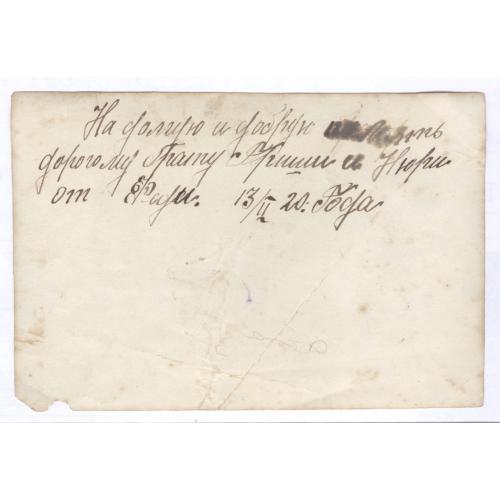 На долгую и добрую память
дорогому Брату Гриши и Нюри
от 13/II 20. Года